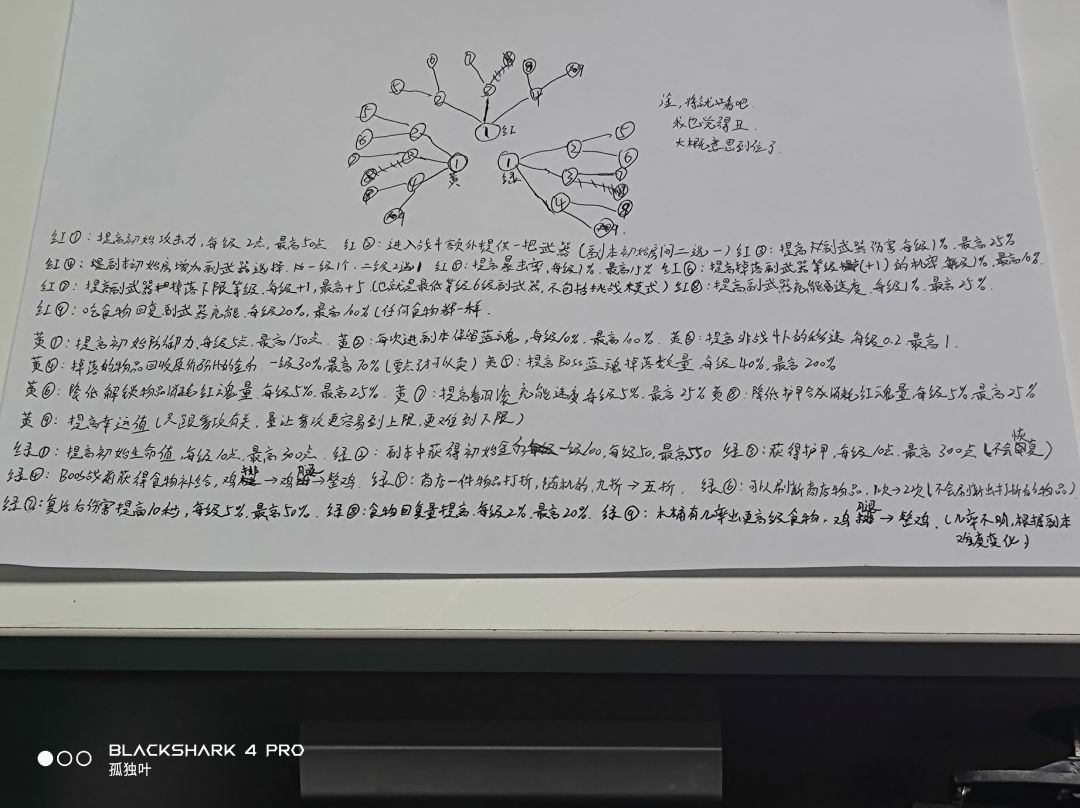 红
黄
绿
注，将就看吧.
我也觉得丑.
大概意思到位了.
红①：提高初始攻击力，每级2点，最高50点. 红②：进入战斗额外提供一把武器（副本初始房间二选一）红③：提高副武器伤害每级1%. 最高25%
红④：提副本初始房增加副武器选择. 一级1个. 二级2选1 红⑤：提高暴击率，每级1%，最高15% 红⑥：提高掉落副武器等级(+1)的机率 每级1%，最高10%.
红⑦：提高副武器掉落下限等级，每级+1，最高+5（也就是最低等级6级副武器，不包括挑战模式）红⑧：提高副武器充能速度. 每级1%，最高25%.
红⑨：吃食物回复副武器充能，每级20%，最高100%（任何食物都一样.
黄①：提高初始防御力，每级5点，最高150点. 黄②：每次进副本保留蓝魂，每级10%. 最高100%. 黄③：提高非战斗的移速 每级0.2 最高1.
黄④：掉落的物品回收原价的金币. 一级30%，最高70%（要点才可以卖）黄⑤：提高Boss蓝魂掉落数量. 每级40%，最高200%
黄⑥：降低解锁物品消耗红魂量. 每级5%. 最高25%. 黄⑦：提高充能速度每级5%. 最高25% 黄⑧：降低护甲合成消耗红魂量 每级5%，最高25%
黄⑨：提高幸运值（只跟篡改有关，是让篡改更容易到上限，更难到下限）
绿①：提高初始生命值，每级10点，最高300点. 绿②：副本中获得初始金币 一级100，每级50，最高550 绿③：获得护甲，每级10点，最高300点（不会恢复）
绿④：Boss战前获得食物补给，鸡排→鸡腿→整鸡. 绿⑤：商店一件物品打折，随机的，九折→五折， 绿⑥：可以刷新商店物品，1次→2次（不会刷新出打折的物品）
绿⑦：复活后伤害提高10秒，每级5%，最高50%. 绿⑧：食物回复量提高. 每级2%. 最高20%. 绿⑨：木桶有几率出更高级食物，鸡腿→整鸡.（几率不明，根据副本
难度变化）
BLACKSHARK 4 PRO
孤独叶